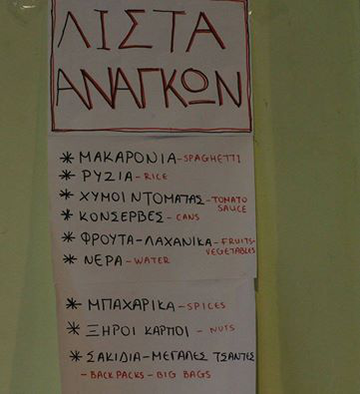 ΛΙΣΤΑ
ΑΝΑΓΚΩΝ
* ΜΑΚΑΡΟΝΙΑ - SPAGHETTI
* ΡΥΖΙΑ - RICE
* ΧΥΜΟΙ ΝΤΟΜΑΤΑΣ - TOMATO SAUCE
* ΚΟΝΣΕΡΒΕΣ - CANS
* ΦΡΟΥΤΑ - ΛΑΧΑΝΙΚΑ - FRUITS - VEGETABLES
* ΝΕΡΑ - WATER
* ΜΠΑΧΑΡΙΚΑ - SPICES
* ΞΗΡΟΙ ΚΑΡΠΟΙ - NUTS
* ΣΑΚΙΔΙΑ - ΜΕΓΑΛΕΣ ΤΣΑΝΤΕΣ
- BACK PACKS - BIG BAGS